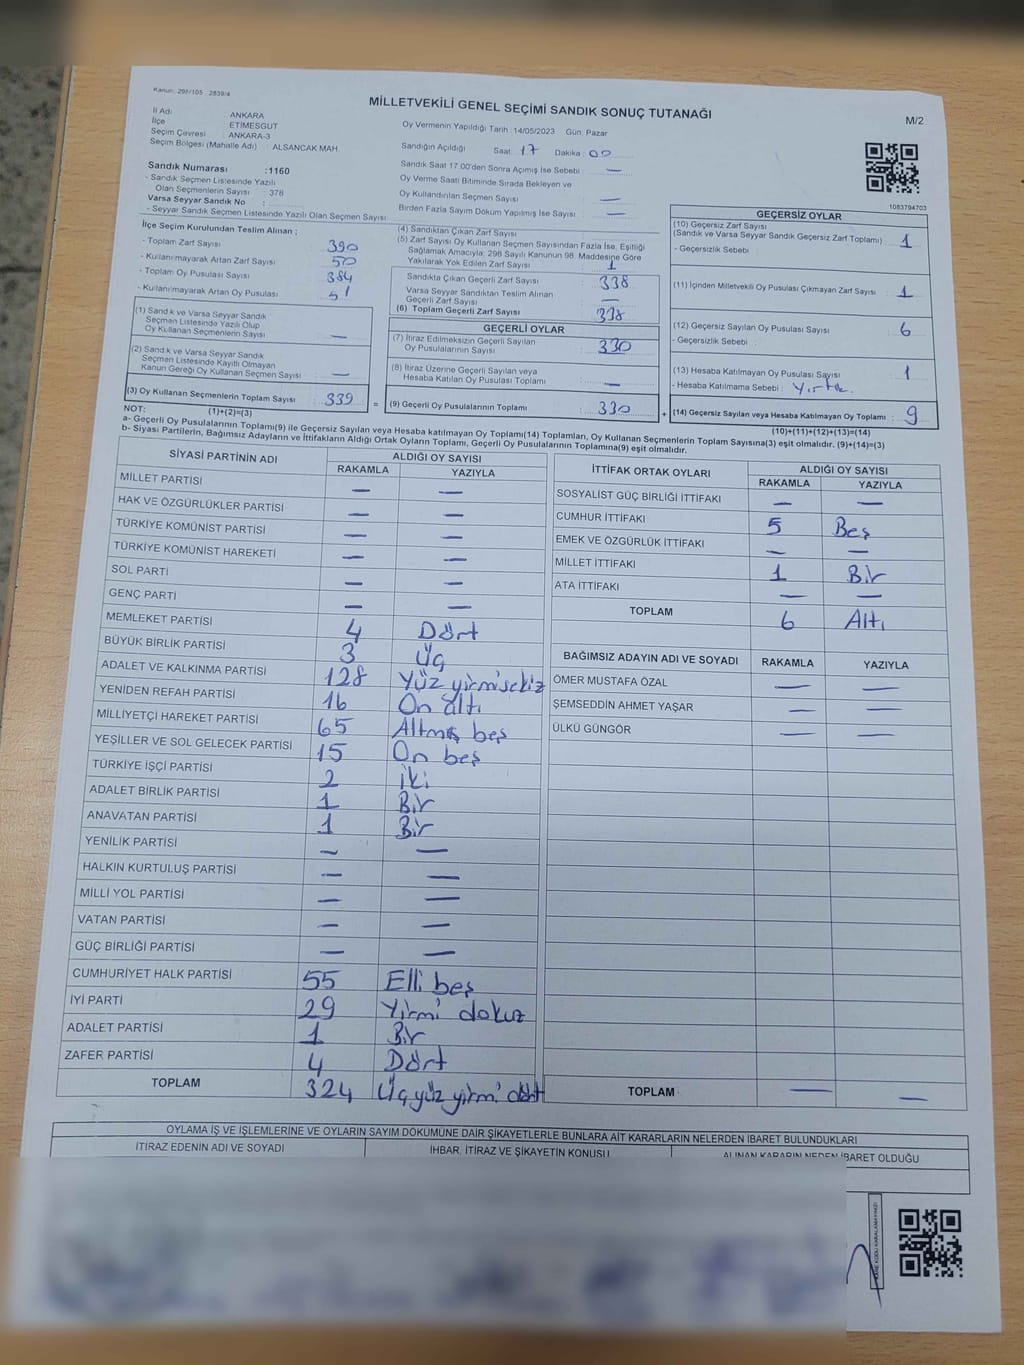 Kanun: 298/105 2839/4
MİLLETVEKİLİ GENEL SEÇİMİ SANDIK SONUÇ TUTANAĞI
M/2
İl Adı : ANKARA
İlçe : ETİMESGUT
Seçim Çevresi : ANKARA-3
Seçim Bölgesi (Mahalle Adı) : ALSANCAK MAH.
Sandık Numarası :1160
- Sandık Seçmen Listesinde Yazılı
Olan Seçmenlerin Sayısı : 378
Varsa Seyyar Sandık No :
- Seyyar Sandık Seçmen Listesinde Yazılı Olan Seçmen Sayısı
Oy Vermenin Yapıldığı Tarih :14/05/2023 Gün: Pazar
Sandığın Açıldığı Saat: 17 Dakika: 00
Sandık Saat 17:00'den Sonra Açımış İse Sebebi : —
Oy Verme Saati Bitiminde Sırada Bekleyen ve
Oy Kullandırılan Seçmen Sayısı —
Birden Fazla Sayım Döküm Yapılmış İse Sayısı —
1083794703
İlçe Seçim Kurulundan Teslim Alınan ;
- Toplam Zarf Sayısı 390
- Kullanılmayarak Artan Zarf Sayısı 50
- Toplam Oy Pusulası Sayısı 384
- Kullanılmayarak Artan Oy Pusulası 51
(1) Sandık ve Varsa Seyyar Sandık
Seçmen Listesinde Yazılı Olup
Oy Kullanan Seçmenlerin Sayısı —
(2) Sandık ve Varsa Seyyar Sandık
Seçmen Listesinde Kayıtlı Olmayan
Kanun Gereği Oy Kullanan Seçmen Sayısı —
(3) Oy Kullanan Seçmenlerin Toplam Sayısı 339
(1)+(2)=(3)
(4) Sandıktan Çıkan Zarf Sayısı
(5) Zarf Sayısı Oy Kullanan Seçmen Sayısından Fazla İse, Eşitliği
Sağlamak Amacıyla, 298 Sayılı Kanunun 98. Maddesine Göre
Yakılarak Yok Edilen Zarf Sayısı 1
Sandıkta Çıkan Geçerli Zarf Sayısı 338
Varsa Seyyar Sandıktan Teslim Alınan
Geçerli Zarf Sayısı —
(6) Toplam Geçerli Zarf Sayısı 338
GEÇERLİ OYLAR
(7) İtiraz Edilmeksizin Geçerli Sayılan
Oy Pusulalarının Sayısı 330
(8) İtiraz Üzerine Geçerli Sayılan veya
Hesaba Katılan Oy Pusulası Toplamı —
= (9) Geçerli Oy Pusulalarının Toplamı 330
GEÇERSİZ OYLAR
(10) Geçersiz Zarf Sayısı
(Sandık ve Varsa Seyyar Sandık Geçersiz Zarf Toplamı) 1
- Geçersizlik Sebebi
(11) İçinden Milletvekili Oy Pusulası Çıkmayan Zarf Sayısı 1
(12) Geçersiz Sayılan Oy Pusulası Sayısı 6
- Geçersizlik Sebebi :
(13) Hesaba Katılmayan Oy Pusulası Sayısı 1
- Hesaba Katılmama Sebebi : Yırtık
+ (14) Geçersiz Sayılan veya Hesaba Katılmayan Oy Toplamı : 9
(10)+(11)+(12)+(13)=(14)
NOT:
a- Geçerli Oy Pusulalarının Toplamı(9) ile Geçersiz Sayılan veya Hesaba katılmayan Oy Toplamı(14) Toplamları, Oy Kullanan Seçmenlerin Toplam Sayısına(3) eşit olmalıdır. (9)+(14)=(3)
b- Siyasi Partilerin, Bağımsız Adayların ve İttifakların Aldığı Ortak Oyların Toplamı, Geçerli Oy Pusulalarının Toplamına(9) eşit olmalıdır.
SİYASİ PARTİNİN ADI ALDIĞI OY SAYISI
RAKAMLA YAZIYLA
MİLLET PARTİSİ — —
HAK VE ÖZGÜRLÜKLER PARTİSİ — —
TÜRKİYE KOMÜNİST PARTİSİ — —
TÜRKİYE KOMÜNİST HAREKETİ — —
SOL PARTİ — —
GENÇ PARTİ — —
MEMLEKET PARTİSİ 4 Dört
BÜYÜK BİRLİK PARTİSİ 3 Üç
ADALET VE KALKINMA PARTİSİ 128 Yüz yirmisekiz
YENİDEN REFAH PARTİSİ 16 On altı
MİLLİYETÇİ HAREKET PARTİSİ 65 Altmış beş
YEŞİLLER VE SOL GELECEK PARTİSİ 15 On beş
TÜRKİYE İŞÇİ PARTİSİ 2 İki
ADALET BİRLİK PARTİSİ 1 Bir
ANAVATAN PARTİSİ 1 Bir
YENİLİK PARTİSİ — —
HALKIN KURTULUŞ PARTİSİ — —
MİLLİ YOL PARTİSİ — —
VATAN PARTİSİ — —
GÜÇ BİRLİĞİ PARTİSİ — —
CUMHURİYET HALK PARTİSİ 55 Elli beş
İYİ PARTİ 29 Yirmi dokuz
ADALET PARTİSİ 1 Bir
ZAFER PARTİSİ 4 Dört
TOPLAM 324 Üçyüz yirmi dört
İTTİFAK ORTAK OYLARI ALDIĞI OY SAYISI
RAKAMLA YAZIYLA
SOSYALİST GÜÇ BİRLİĞİ İTTİFAKI — —
CUMHUR İTTİFAKI 5 Beş
EMEK VE ÖZGÜRLÜK İTTİFAKI — —
MİLLET İTTİFAKI 1 Bir
ATA İTTİFAKI — —
TOPLAM 6 Altı
BAĞIMSIZ ADAYIN ADI VE SOYADI RAKAMLA YAZIYLA
ÖMER MUSTAFA ÖZAL — —
ŞEMSEDDİN AHMET YAŞAR — —
ÜLKÜ GÜNGÖR — —
TOPLAM — —
OYLAMA İŞ VE İŞLEMLERİNE VE OYLARIN SAYIM DÖKÜMÜNE DAİR ŞİKAYETLERLE BUNLARA AİT KARARLARIN NELERDEN İBARET BULUNDUKLARI
İTİRAZ EDENİN ADI VE SOYADI İHBAR, İTİRAZ VE ŞİKAYETİN KONUSU ALINAN KARARIN NEDEN İBARET OLDUĞU